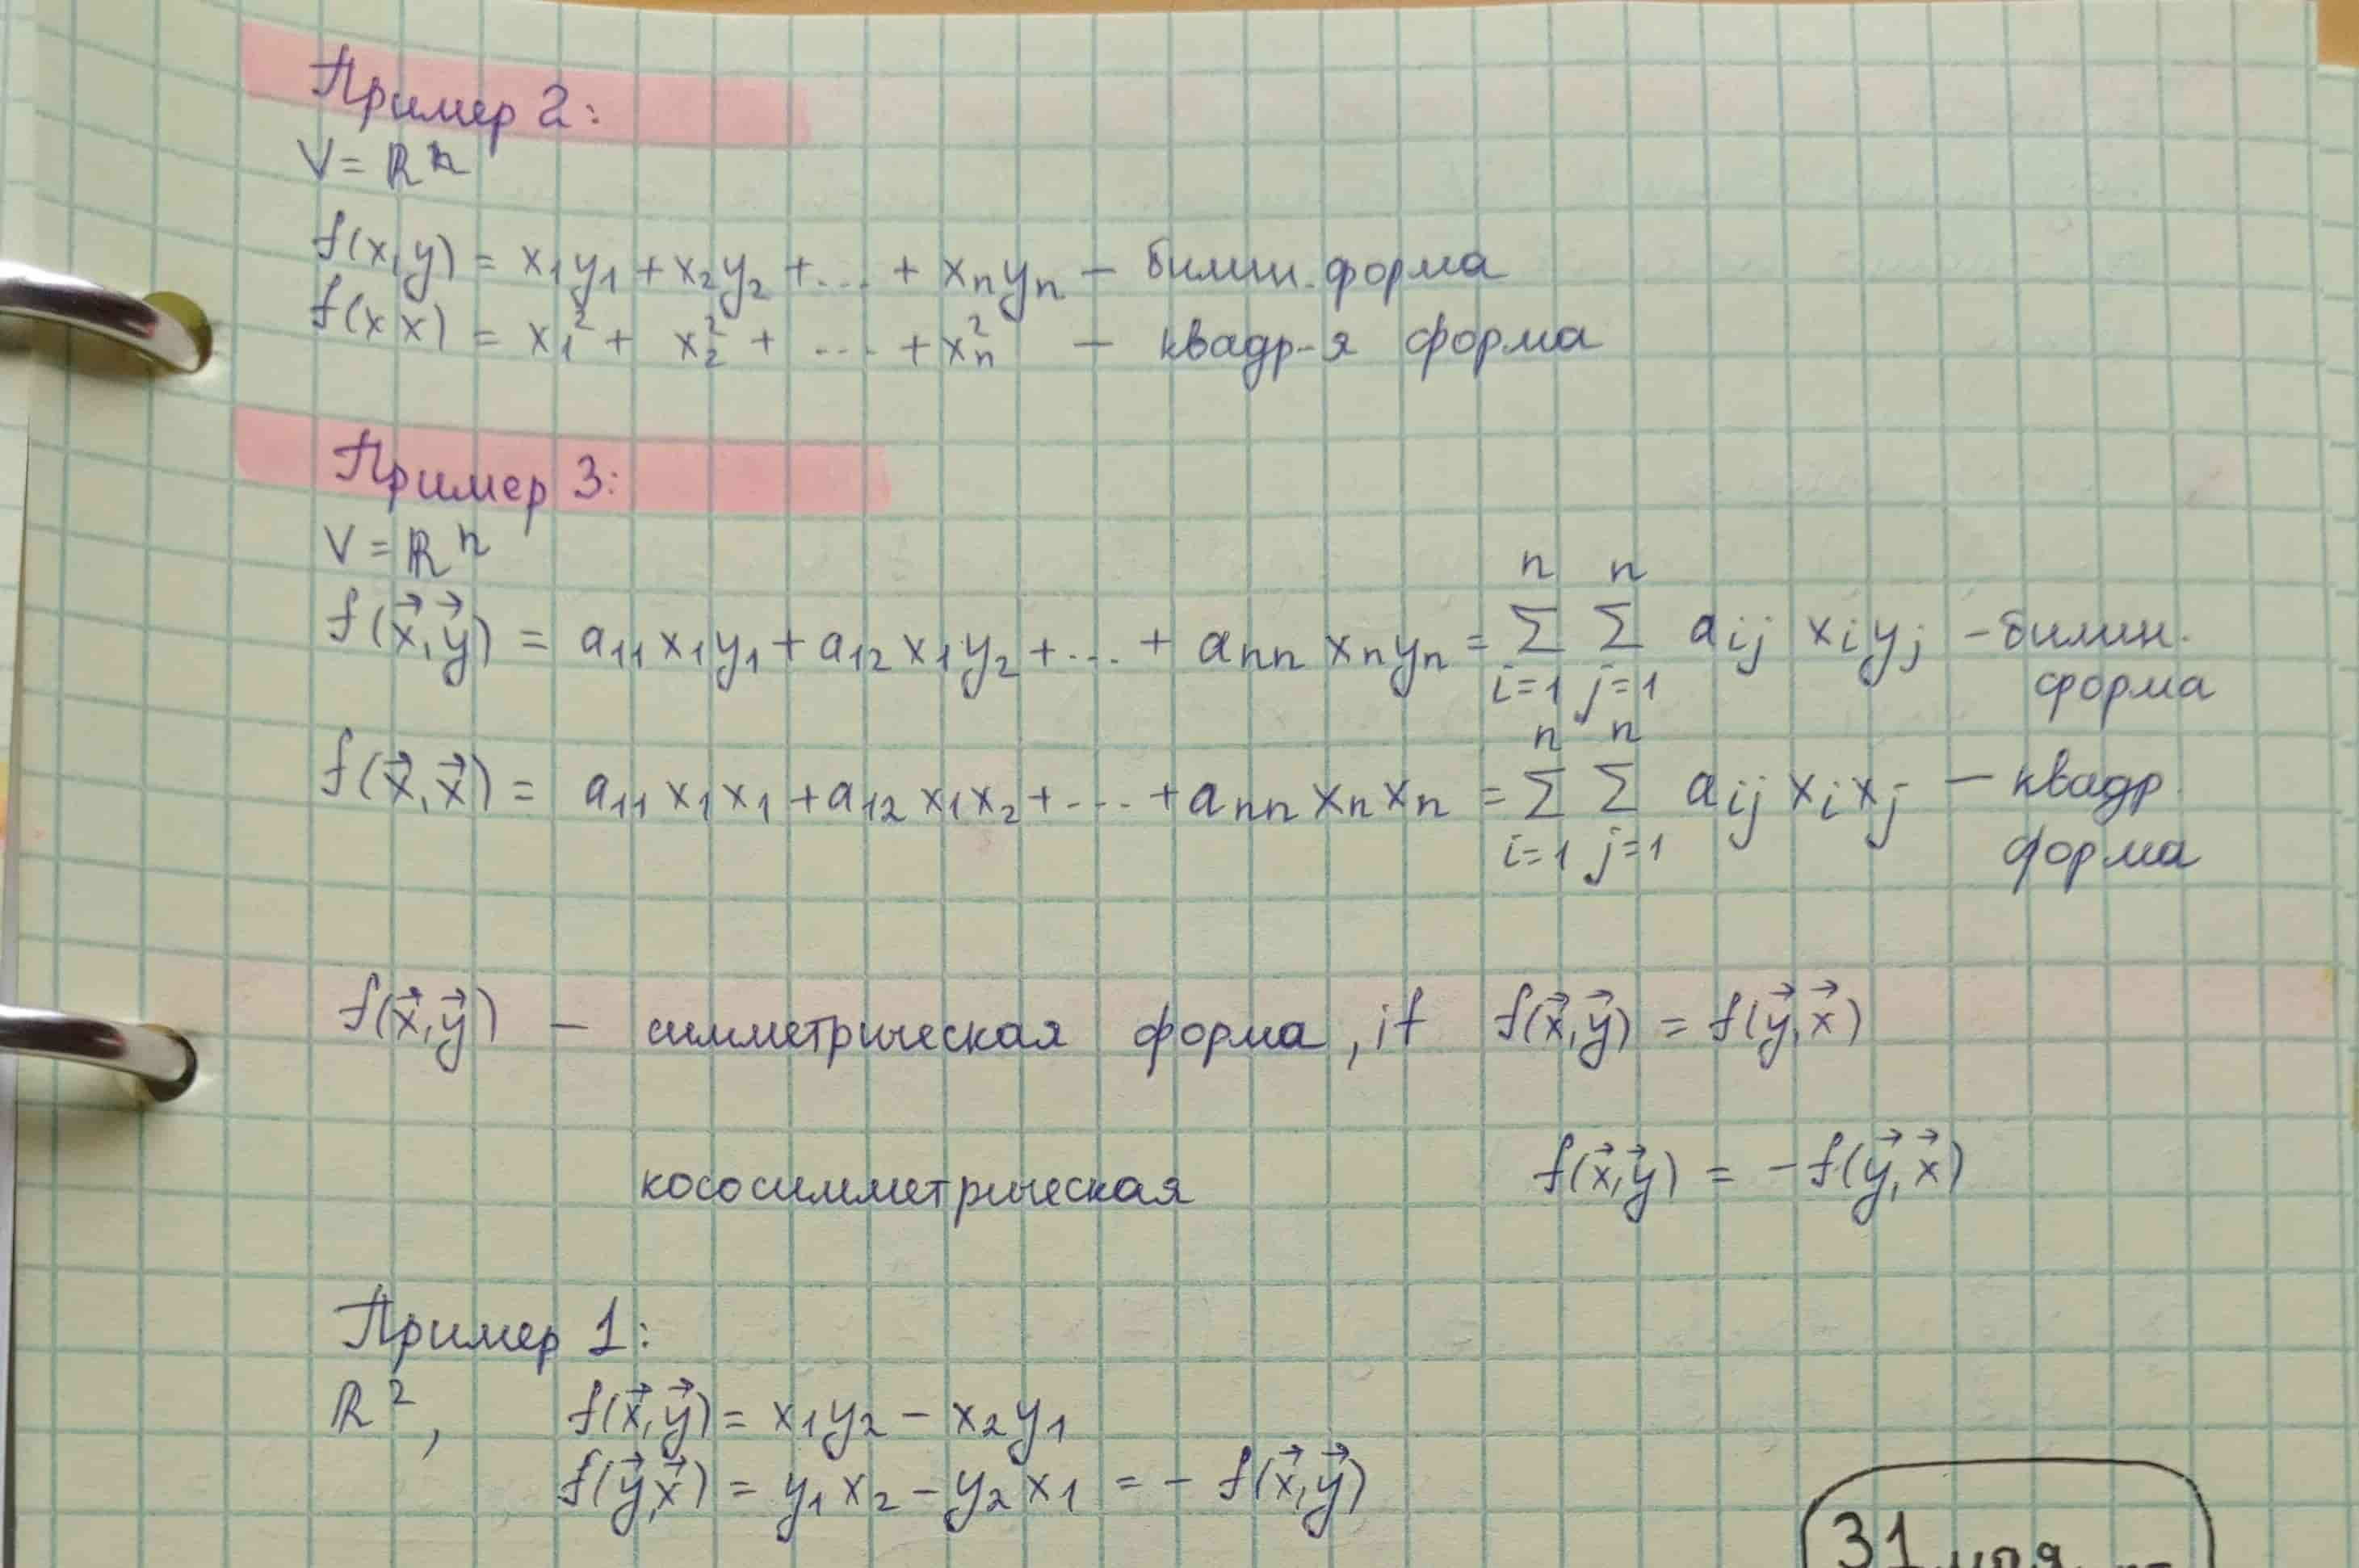 Пример 2:
V = ℝⁿ
f(x,y) = x₁y₁ + x₂y₂ + ... + xₙyₙ – билин. форма
f(x x) = x₁² + x₂² + ... + xₙ² – квадр-я форма
Пример 3:
V = ℝⁿ
f(x⃗,y⃗) = a₁₁x₁y₁ + a₁₂x₁y₂ + ... + aₙₙxₙyₙ = ∑_{i=1}^{n} ∑_{j=1}^{n} a_{ij} x_i y_j – билин. форма
f(x⃗,x⃗) = a₁₁x₁x₁ + a₁₂x₁x₂ + ... + aₙₙxₙxₙ = ∑_{i=1}^{n} ∑_{j=1}^{n} a_{ij} x_i x_j – квадр. форма
f(x⃗,y⃗) – симметрическая форма, if f(x⃗,y⃗) = f(y⃗,x⃗)
кососимметрическая f(x⃗,y⃗) = -f(y⃗,x⃗)
Пример 1:
ℝ², f(x⃗,y⃗) = x₁y₂ – x₂y₁
f(y⃗,x⃗) = y₁x₂ – y₂x₁ = - f(x⃗,y⃗)
31